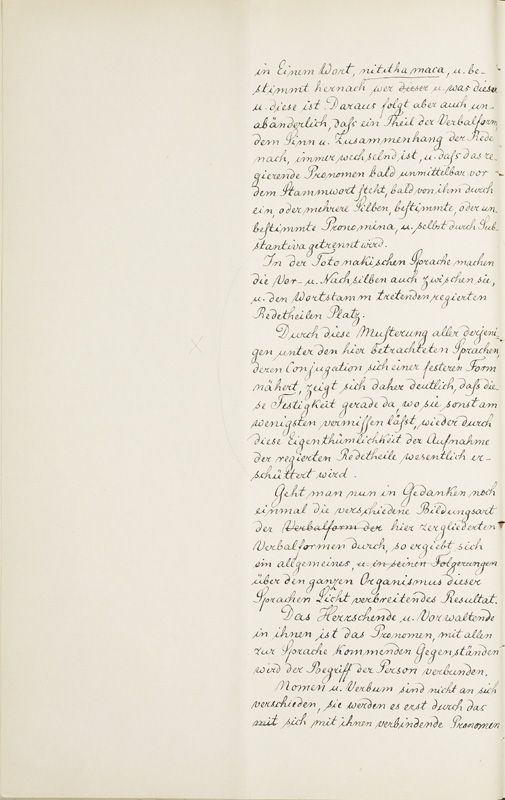 in Einem Wort, nititha maca, u. be-
stimmt hernach wer dieser u. was dieser
u. diese ist. Daraus folgt aber auch un-
abänderlich, dafs ein Theil der Verbalform
dem Sinn u. Zusammenhang der Rede
nach, immer wechselnd ist, u. dafs das re-
gierende Pronomen bald unmittelbar vor
dem Stammwort steht, bald von ihm durch
ein, oder mehrere Silben, bestimmte, oder un-
bestimmte Pronomina, u. selbst durch Sub-
stantiva getrennt wird.
In der Totonakischen Sprache machen
die Vor- u. Nachsilben auch zwischen sie,
u. den Wortstamm tretenden regierten
Redetheilen Platz.
Durch diese Musterung aller derjeni-
gen unter den hier betrachteten Sprachen,
deren Conjugation sich einer festeren Form
nähert, zeigt sich daher deutlich, dafs die-
se Festigkeit gerade da, wo sie sonst am
wenigsten vermissen läfst, wieder durch
diese Eigenthümlichkeit der Aufnahme
der regierten Redetheile wesentlich er-
schüttert wird.
Geht man nun in Gedanken noch
einmal die verschiedne Bildungsart
der Verbalform der hier zergliederten
Verbalformen durch, so ergiebt sich
ein allgemeines, u. in seinen Folgerungen
über den ganzen Organismus dieser
Sprachen Licht verbreitendes Resultat.
Das Herrschende u. Vorwaltende
in ihnen ist das Pronomen, mit allen
zur Sprache kommenden Gegenständen
wird der Begriff der Person verbunden.
Nomen u. Verbum sind nicht an sich
verschieden, sie werden es erst durch das
mit sich mit ihnen verbindende Pronomen